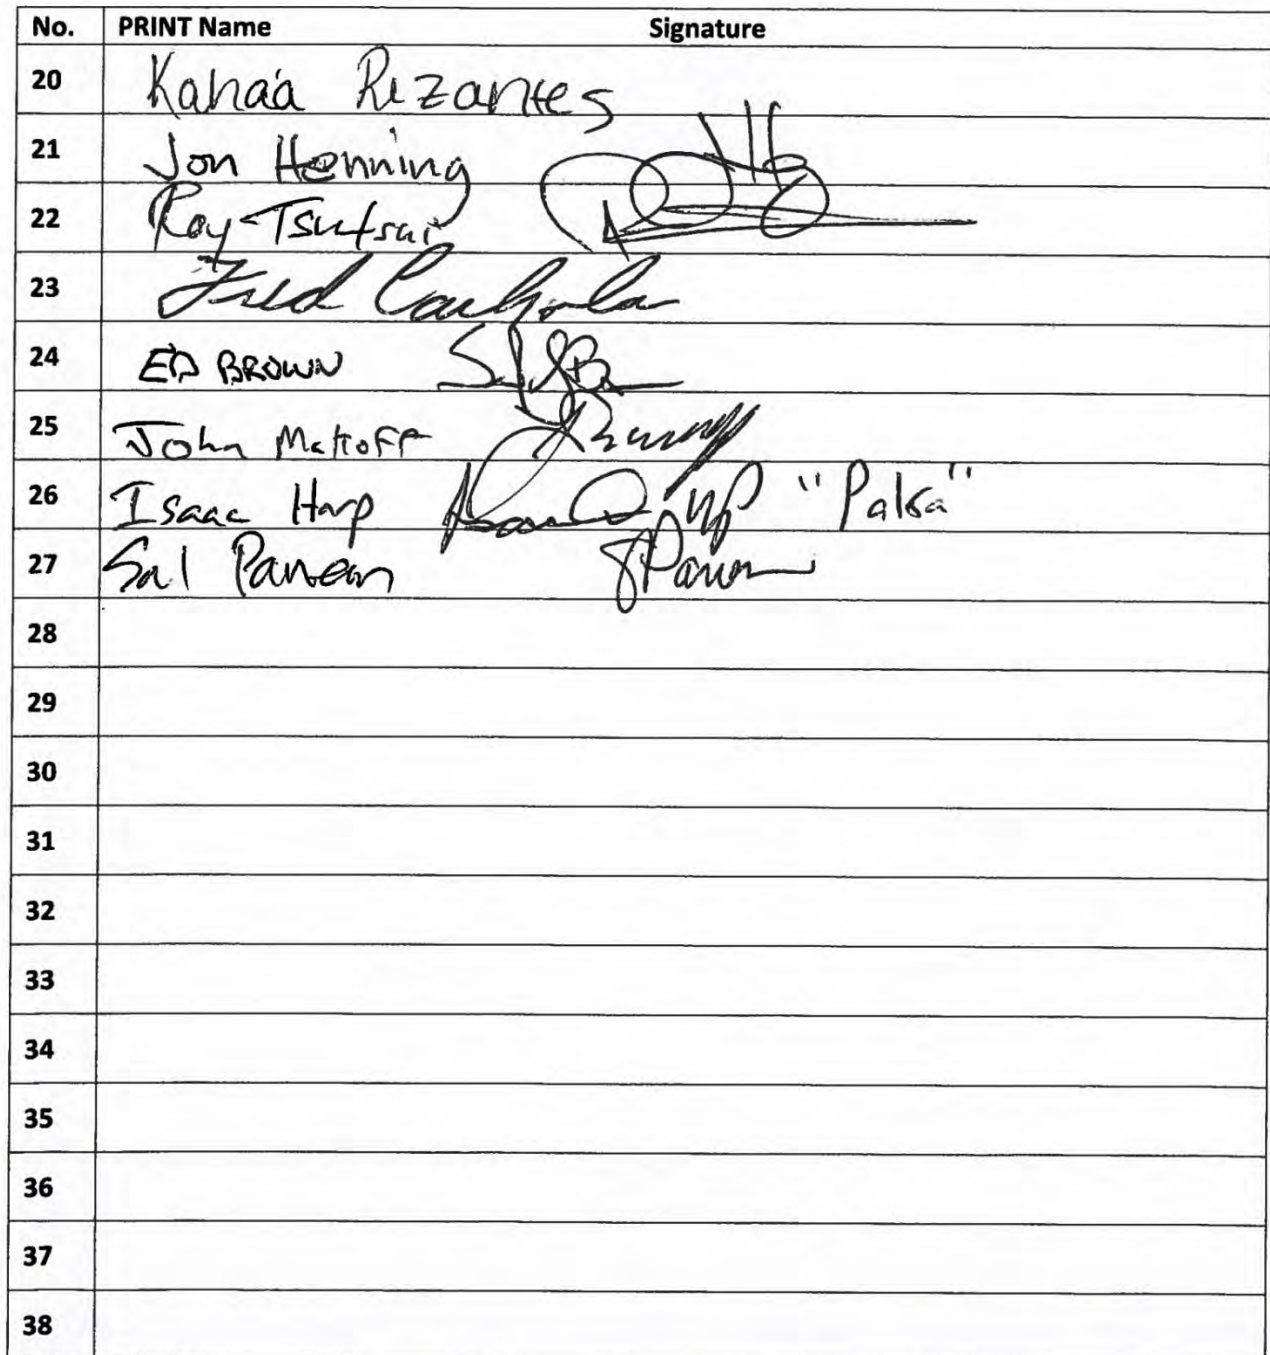 No. PRINT Name Signature
20 Kahaʻa Rezantes
21 Jon Henning
22 Roy Tsutsui
23 Fred Cachola
24 ED BROWN
25 John Makoff
26 Isaac Harp "Paka"
27 Sal
28
29
30
31
32
33
34
35
36
37
38